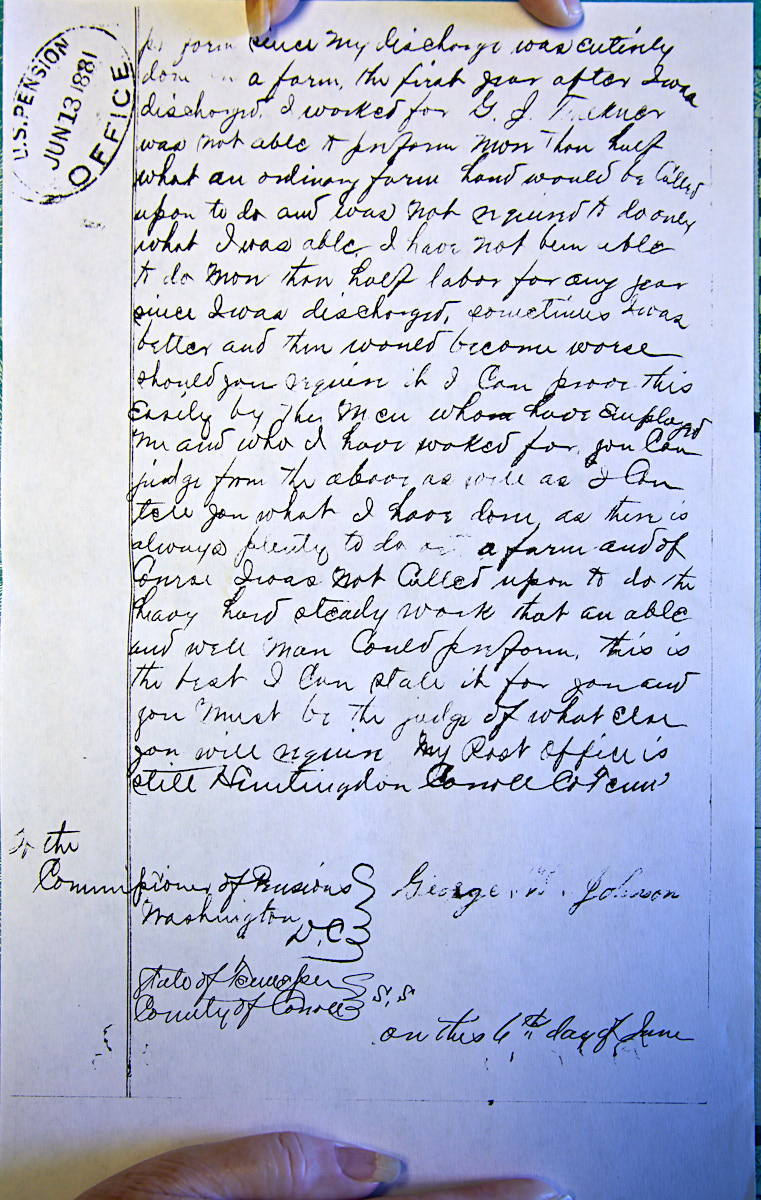 U.S. PENSION
JUN 13 1881
OFFICE
form since my discharge was entirely
done a farm, the first year after I was
discharged. I worked for G. J.
was not able to preform more than half
what an ordinary farm hand would be Called
upon to do and was not required to do only
what I was able. I have not been able
to do more than half labor for any year
since I was discharged, sometimes I was
better and then would become worse
should you require it I Can prove this
Easily by the Men whom have Employed
Me and who I have woked for, you Can
judge from the above as well as I Can
tell you what I have done, as there is
always plenty to do a farm and of
Course I was not Called upon to do the
heavy hard steady work that an able
and well man Could preform, this is
the best I Can state it for you and
you must be the judge of what else
you will require My Post Office is
still Huntingdon Carroll Co Tenn
To the
Commissioner of Pensions
George Johnson
Washington
D.C.
State of Tennessee
County of Carroll
S.S
on this 6th day of June